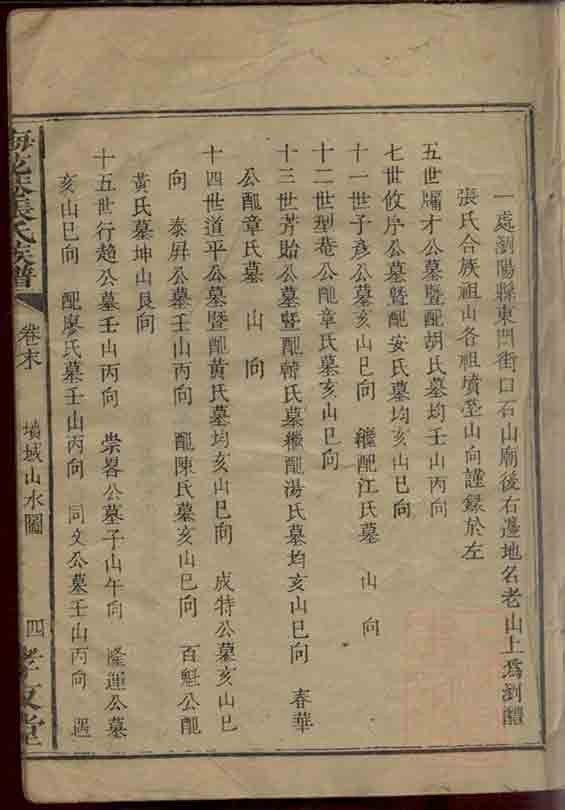 一處瀏陽縣東門街口石山廟後右邊地名老山上爲瀏醴
張氏合族祖山各祖墳塋山向謹録於左
五世 才公墓暨配胡氏墓均壬山丙向
七世攸序公墓暨配安氏墓均亥山巳向
十一世子彥公墓亥山巳向 繼配江氏墓 山 向
十二世型菴公配章氏墓亥山巳向
十三世芳貽公墓暨配韓氏墓繼配湯氏墓均亥山巳向 春華
公配章氏墓 山 向
十四世道平公墓暨配黃氏墓均亥山巳向 成特公墓亥山巳
向 泰昇公墓壬山丙向 配陳氏墓亥山巳向 百魁公配
黃氏墓坤山艮向
十五世行趨公墓壬山丙向 崇畧公墓子山午向 隆運公墓
亥山巳向 配廖氏墓壬山丙向 同文公墓壬山丙向 遇
張氏族譜 卷末 墳域山水圖 四 孝友堂